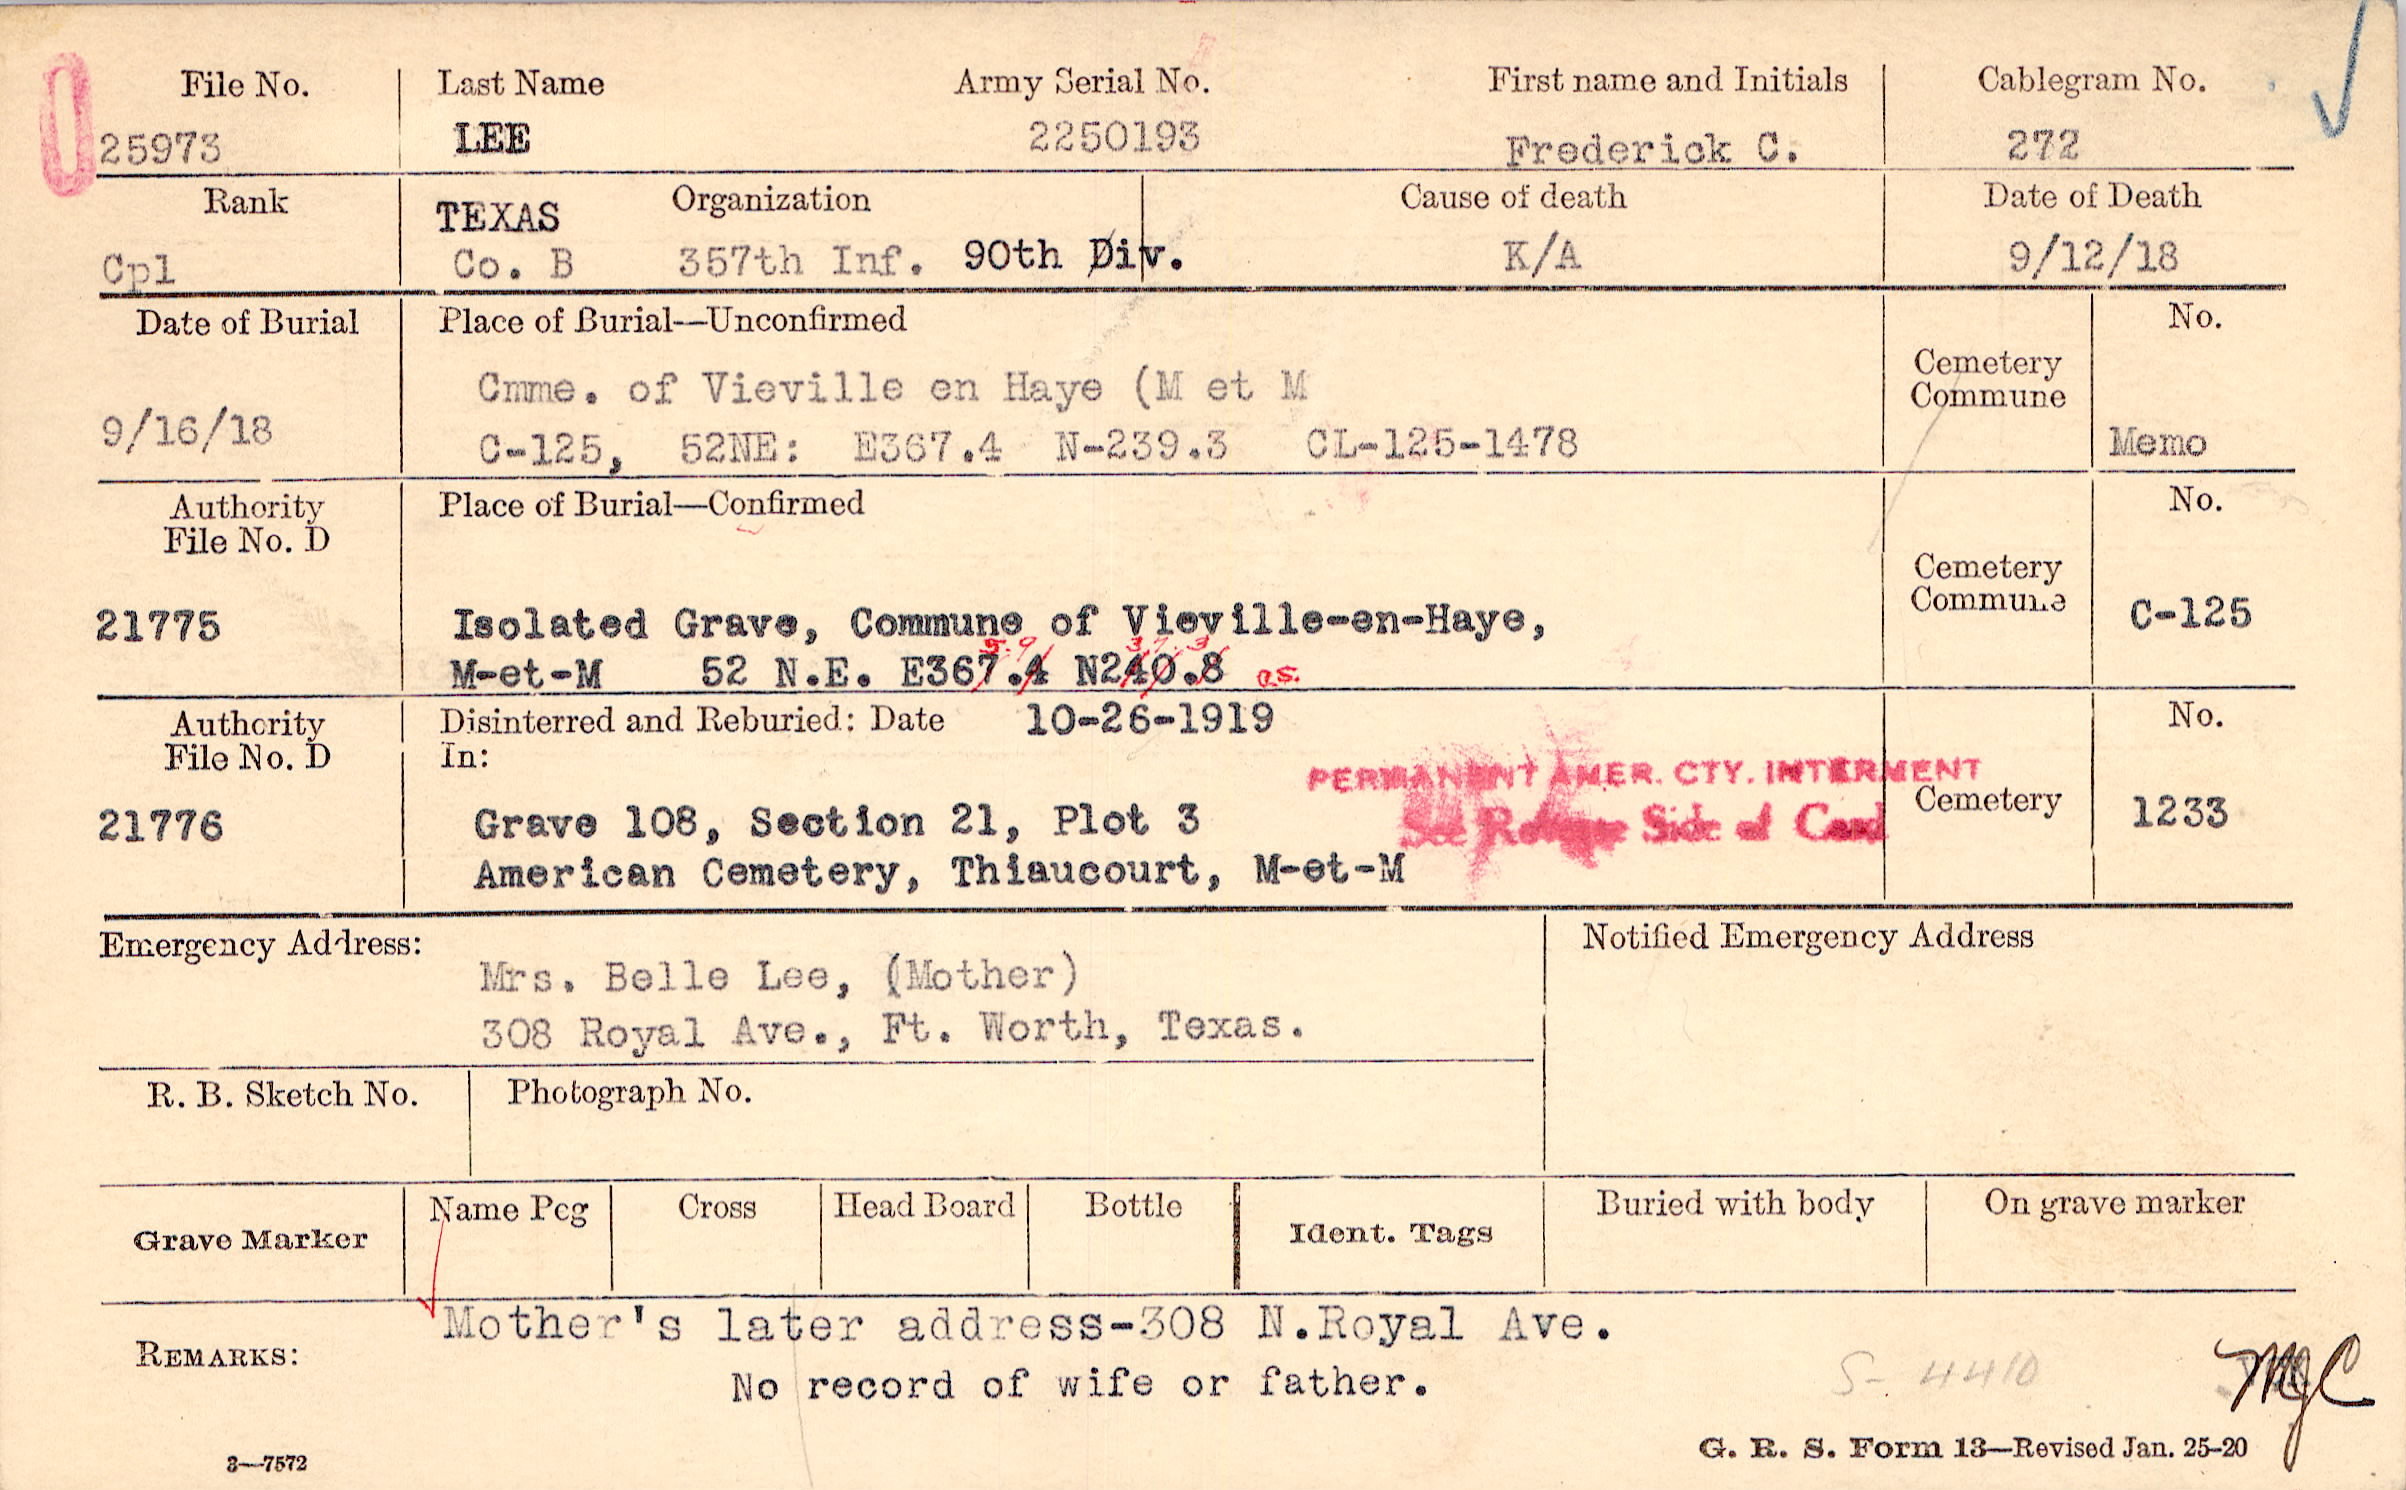 File No. Last Name Army Serial No. First name and Initials Cablegram No.
25973 LEE 2250193 Frederick C. 272
Rank TEXAS Organization Cause of death Date of Death
Cpl Co. B 357th Inf. 90th Div. K/A 9/12/18
Date of Burial Place of Burial—Unconfirmed No.
Cemetery
Commune
Cmme. of Vieville en Haye (M et M
9/16/18 C-125, 52NE: E367.4 N-239.3 CL-125-1478 Memo
Authority Place of Burial—Confirmed No.
File No. D
Cemetery
Commune
21775 Isolated Grave, Commune of Vieville-en-Haye, C-125
5.9 37.3
M-et-M 52 N.E. E367.4 N240.8
Authority Disinterred and Reburied: Date 10-26-1919 No.
File No. D In:
PERMANENT AMER. CTY. INTERMENT
Cemetery
21776 Grave 108, Section 21, Plot 3 See Reverse Side of Card 1233
American Cemetery, Thiaucourt, M-et-M
Emergency Address: Notified Emergency Address
Mrs. Belle Lee, (Mother)
308 Royal Ave., Ft. Worth, Texas.
R. B. Sketch No. Photograph No.
Name Peg Cross Head Board Bottle Buried with body On grave marker
Grave Marker Ident. Tags
Mother's later address-308 N.Royal Ave.
REMARKS:
No record of wife or father.
S- 4410 MJC
G. R. S. Form 13—Revised Jan. 25-20
3—7572